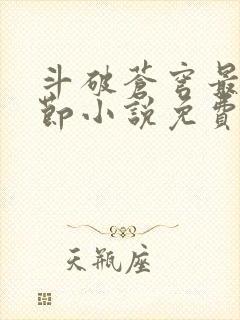 斗破苍穹最
节小说免费
天瓶座